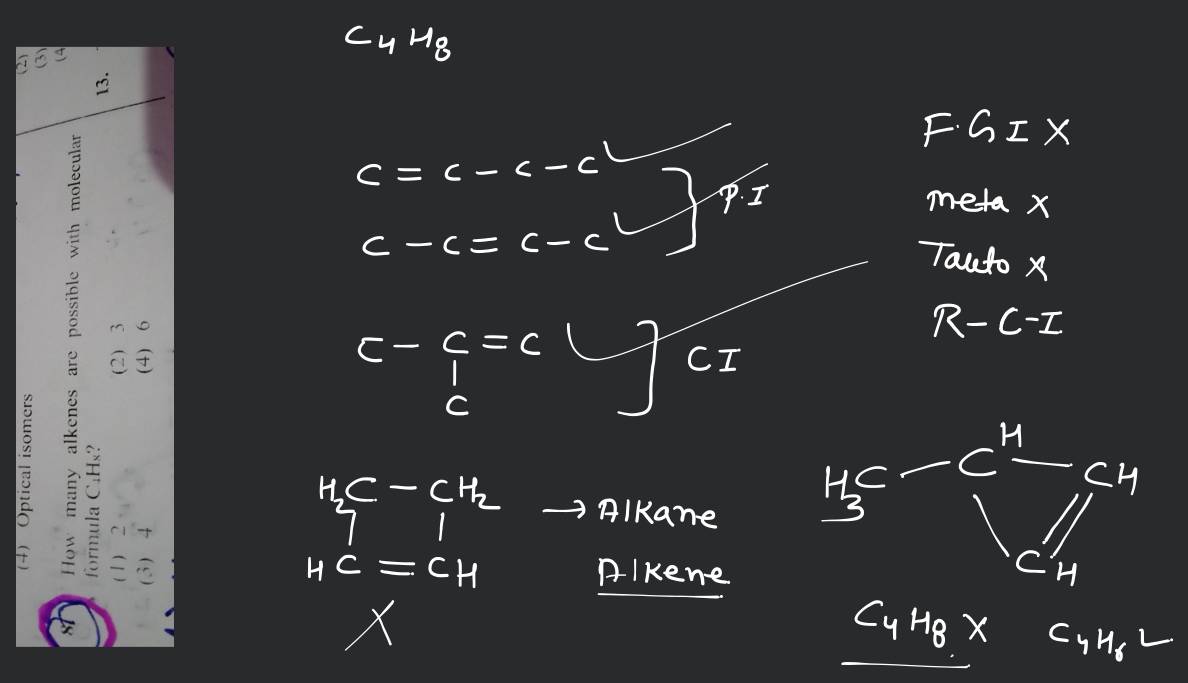 (2)
(3)
(4
13.
(4) Optical isomers
8. How many alkenes are possible with molecular
formula C₄H₈?
(1) 2 (2) 3
(3) 4 (4) 6
C₄H₈
C = C - C - C
C - C = C - C
P.I
C - C = C
C
CI
F.G I X
meta X
Tauto X
R-C-I
H₂C - CH₂
HC = CH
X
→ Alkane
Alkene
H₃C - C H - CH
CH
C₄H₈ X C₄H₆